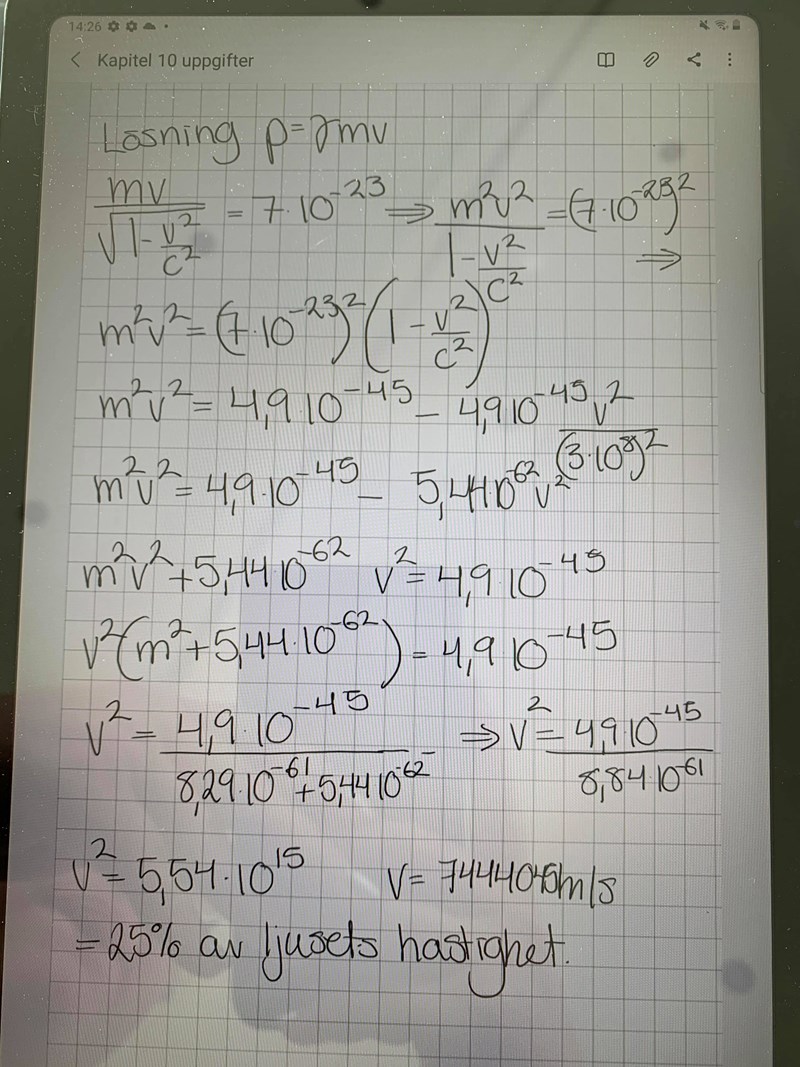 14:26
Kapitel 10 uppgifter
Lösning p=γmv
mv/√(1-v²/c²) = 7·10⁻²³ ⇒ m²v²/(1-v²/c²) = (7·10⁻²³)² ⇒
m²v² = (7·10⁻²³)² (1 - v²/c²)
m²v² = 4,9 10⁻⁴⁵ - 4,9 10⁻⁴⁵ v²/(3·10⁸)²
m²v² = 4,9·10⁻⁴⁵ - 5,44·10⁻⁶² v²
m²v² + 5,44 10⁻⁶² v² = 4,9 10⁻⁴⁵
v²(m² + 5,44·10⁻⁶²) = 4,9 10⁻⁴⁵
v² = 4,9·10⁻⁴⁵/(8,29·10⁻⁶¹ + 5,44 10⁻⁶²) ⇒ v² = 4,9·10⁻⁴⁵/(8,84·10⁻⁶¹)
v² = 5,54·10¹⁵ v = m/s
= 25% av ljusets hastighet.